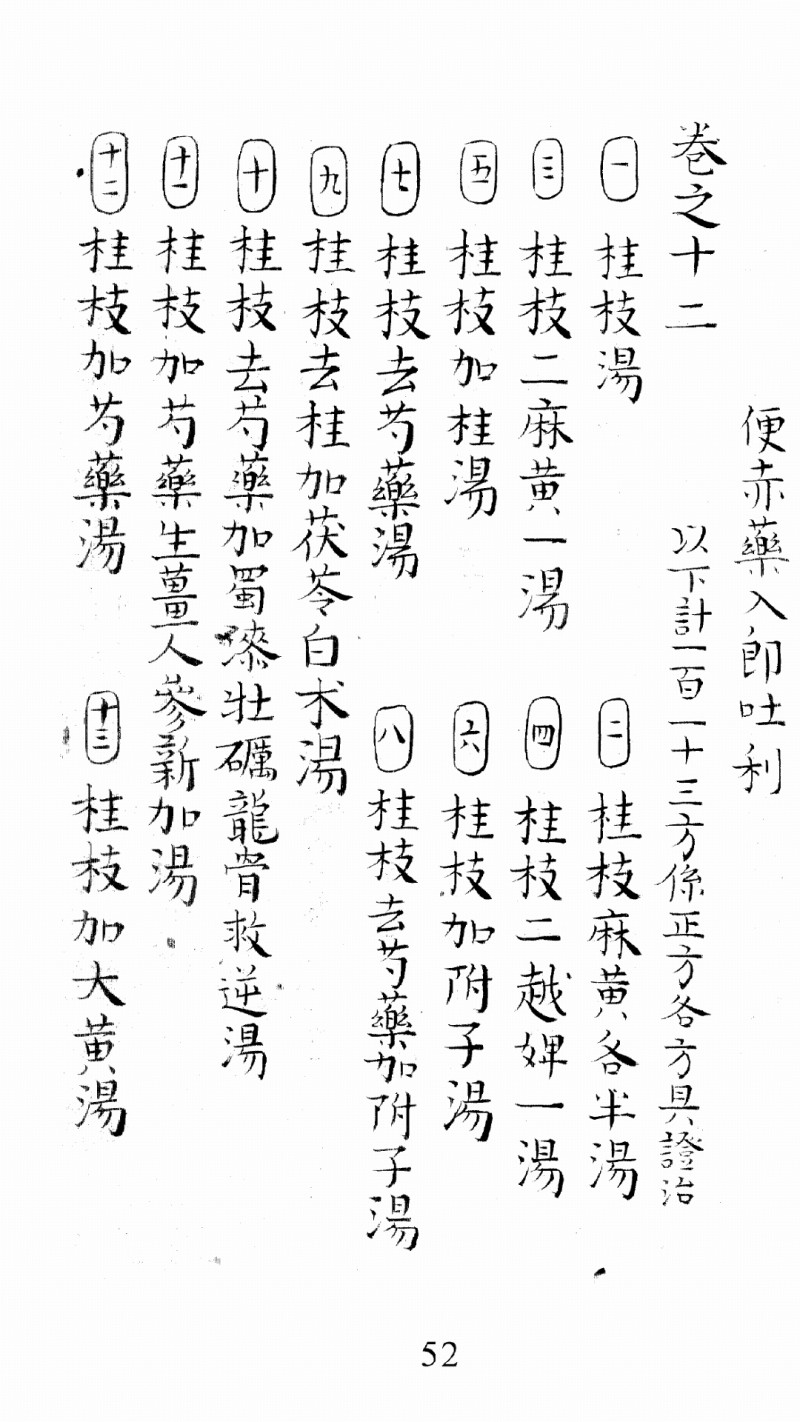 便赤藥入即吐利
卷之十二 以下計一百一十三方係正方各方具證治
一 桂枝湯 二 桂枝麻黄各半湯
三 桂枝二麻黄一湯 四 桂枝二越婢一湯
五 桂枝加桂湯 六 桂枝加附子湯
七 桂枝去芍藥湯 八 桂枝去芍藥加附子湯
九 桂枝去桂加茯苓白朮湯
十 桂枝去芍藥加蜀漆壮礪龍骨救逆湯
十一 桂枝加芍藥生薑人參新加湯
十二 桂枝加芍藥湯 十三 桂枝加大黄湯
52